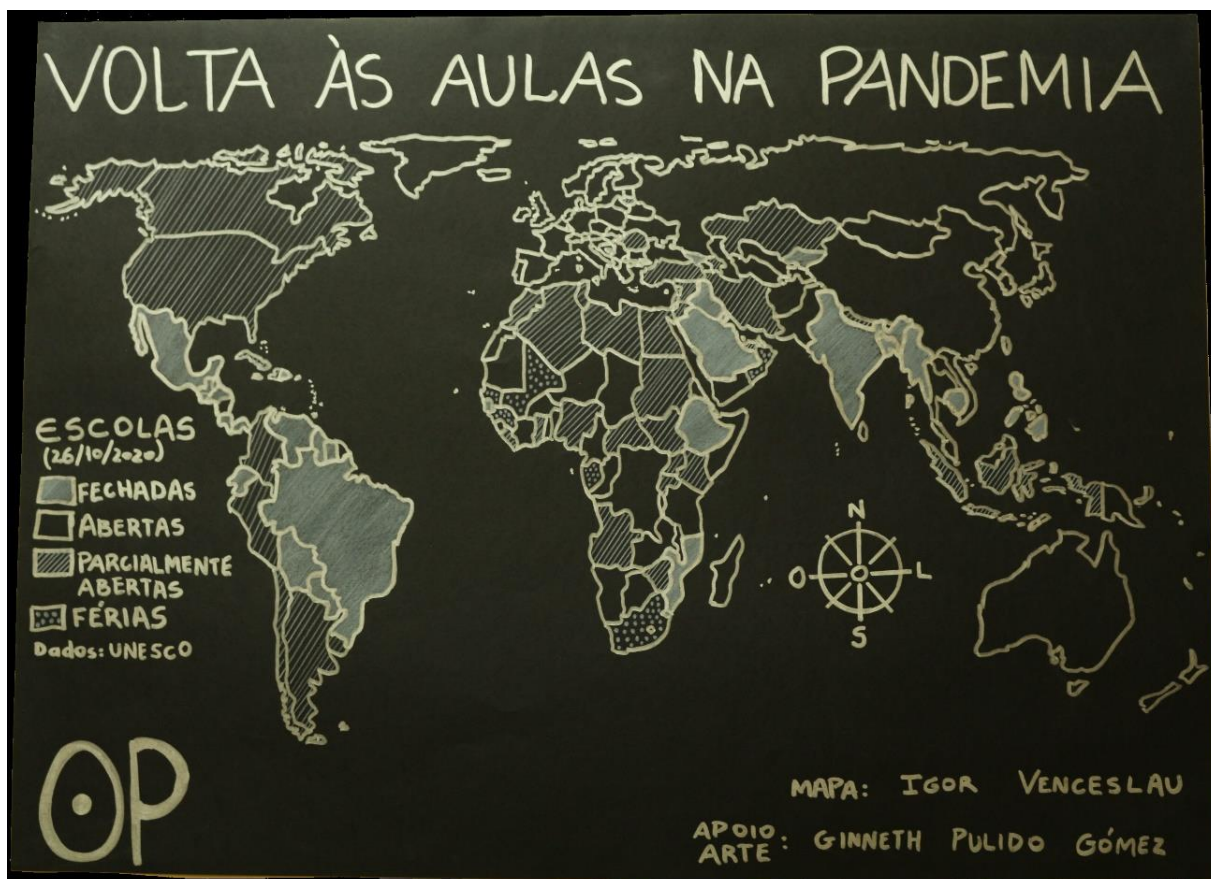 VOLTA ÀS AULAS NA PANDEMIA
ESCOLAS
(26/10/2020)
FECHADAS
ABERTAS
PARCIALMENTE
ABERTAS
FÉRIAS
Dados: UNESCO
N
O L
S
OP
MAPA: IGOR VENCESLAU
APOIO
ARTE : GINNETH PULIDO GÓMEZ